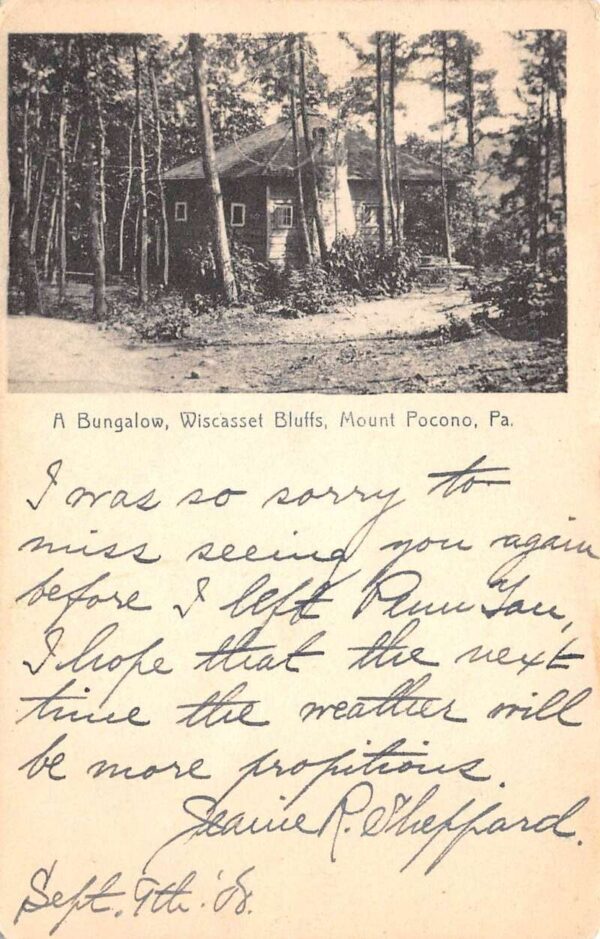 A Bungalow, Wiscasset Bluffs, Mount Pocono, Pa.
I was so sorry to
miss seeing you again
before I left Penn Yan,
I hope that the next
time the weather will
be more propitious.
R. Sheppard.
Sept. 9th.